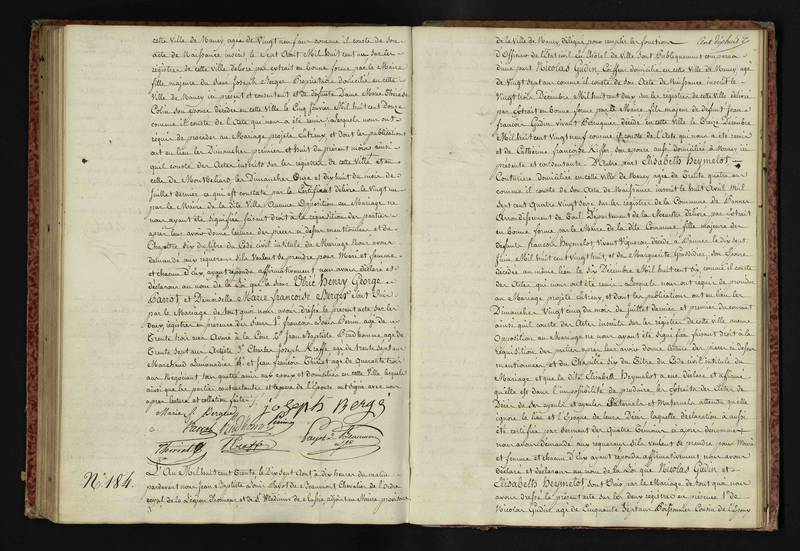 cette Ville de Nancy agée de Vingt neuf ans comme il conste de son
acte de Naissance inscrit le sept Août Mil huit cent un sur les
régistres de cette Ville délivré par extrait en bonne forme par le Maire
fille majeure du sieur Joseph Berger Propriétaire domicilié en cette
Ville de Nancy ici présent et consentant et de défunte Dame Marie Thérèse
Colin son Epouse décédée en cette Ville le Cinq Janvier Mil huit cent Douze
comme il conste de l'acte qui nous a été remis. Lesquels nous ont
requis de procéder au Mariage projeté entr'eux et dont les publications
ont eu lieu les Dimanches premier et huit du présent mois ainsi
qu'il conste des Actes inscrits sur les registres de cette Ville et en
celle de Montbéliard les Dimanches Onze et dix huit du mois de
Juillet dernier ce qui est constaté par le Certificat délivré le Vingt un
par le Maire de la dite Ville. Aucune Opposition au Mariage ne
nous ayant été signifiée, faisant droit à la réquisition des parties
après leur avoir donné lecture des pièces ci dessus mentionnées et du
Chapitre six du titre du Code civil intitulé du Mariage nous avons
demandé aux requérans s'ils veulent se prendre pour Mari et femme
et chacun d'eux ayant répondu affirmativement nous avons déclaré et
déclarons au nom de la Loi que le sieur Henry George
Parrot et Demoiselle Marie Françoise Berger sont Unis
par le Mariage de tout quoi nous avons dressé le présent acte sur les
deux registres en présence des sieurs 1° françois Louis agé de
Trente trois ans Avoué à la Cour 2° Jean Baptiste agé de
Trente sept ans Artiste 3° Charles Joseph Kreffe agé de trente sept ans
Marchand Limonadier 4° et Jean agé de Quarante trois
ans Négociant tous quatre amis aux epoux et domiciliés en cette Ville lesquels
ainsi que les parties contractantes et le père de l'épouse ont signé avec nous
après lecture et collation faites
Marie f. Berger joseph Bergé
Parrot
Kreffe
N°. 184. L'An Mil huit cent Trente, le Dix sept Août à dix heures du matin
pardevant nous Jean Baptiste Louis de Beaumont Chevalier de l'Ordre
royal de la Légion d'honneur et de St Wladimir de Russie adjoint au Maire provisoire
Août dix huit
de la Ville de Nancy délégué pour remplir les fonctions
d'Officier de l'état civil en l'hôtel de Ville sont Publiquement comparus
d'une part Nicolas Gudin Coiffeur domicilié en cette Ville de Nancy agé
de Vingt sept ans comme il conste de son Acte de Naissance inscrit le
Vingt trois Décembre Mil huit cent deux sur les régistres de cette Ville délivré
par Extrait en Bonne forme par le Maire, fils majeur de défunt Jean
françois Gudin vivant Perruquier décédé en cette Ville le Treize Décembre
Mil huit cent Vingt neuf comme il conste de l'Acte qui nous a été remis
et de Catherine Françoise Kiffer son epouse aussi domiciliée à Nancy ici
présente et consentante. D'Autre part Elisabeth Heymelot
Couturière domiciliée en cette Ville de Nancy agée de Trente quatre ans
comme il conste de son Acte de Naissance inscrit le huit Avril Mil
sept cent Quatre Vingt seize sur les régistres de la Commune de
Arrondissement de Toul, Département de la Meurthe délivré par Extrait
en Bonne forme par le Maire de la dite Commune fille majeure des
défunts françois Heymelot Vivant Vigneron décédé à le dix sept
Juin Mil huit cent Vingt huit, et de Marguerite Grosdidier, son Epouse
décédée au même lieu le six Décembre Mil huit cent dix comme il conste
des Actes, qui nous ont été remis. Lesquels nous ont requis de procéder
au Mariage projeté entr'eux, et dont les publications ont eu lieu les
Dimanches Vingt cinq du mois de Juillet dernier et premier du courant
ainsi qu'il conste des Actes inscrits sur les régistres de cette Ville aucune
Opposition au Mariage ne nous ayant été signifiée faisant droit à la
réquisition des parties après leur avoir donné lecture des pièces ci dessus
mentionnées et du Chapitre six du Titre du Code civil intitulé du
Mariage et que la dite Elisabeth Heymelot a en déclaré et affirmé
qu'elle est dans l'impossibilité de produire les Extraits des Actes de
Décès de ses ayeuls et ayeules Paternels et Maternels attendu qu'elle
ignore le lieu et l'époque de leurs Décès, laquelle déclaration a aussi
été certifiée par serment des Quatre Témoins ci après dénommés
nous avons demandé aux requérans s'ils veulent se prendre pour Mari
et femme et chacun d'eux ayant répondu affirmativement nous avons
déclaré et déclarons au nom de la Loi que Nicolas Gudin et
Elisabeth Heymelot, sont Unis par le Mariage de tout quoi nous
avons dressé le présent acte sur les deux registres en présence 1° de
Nicolas Gudin agé de Cinquante sept ans Poissonnier Cousin de l'époux